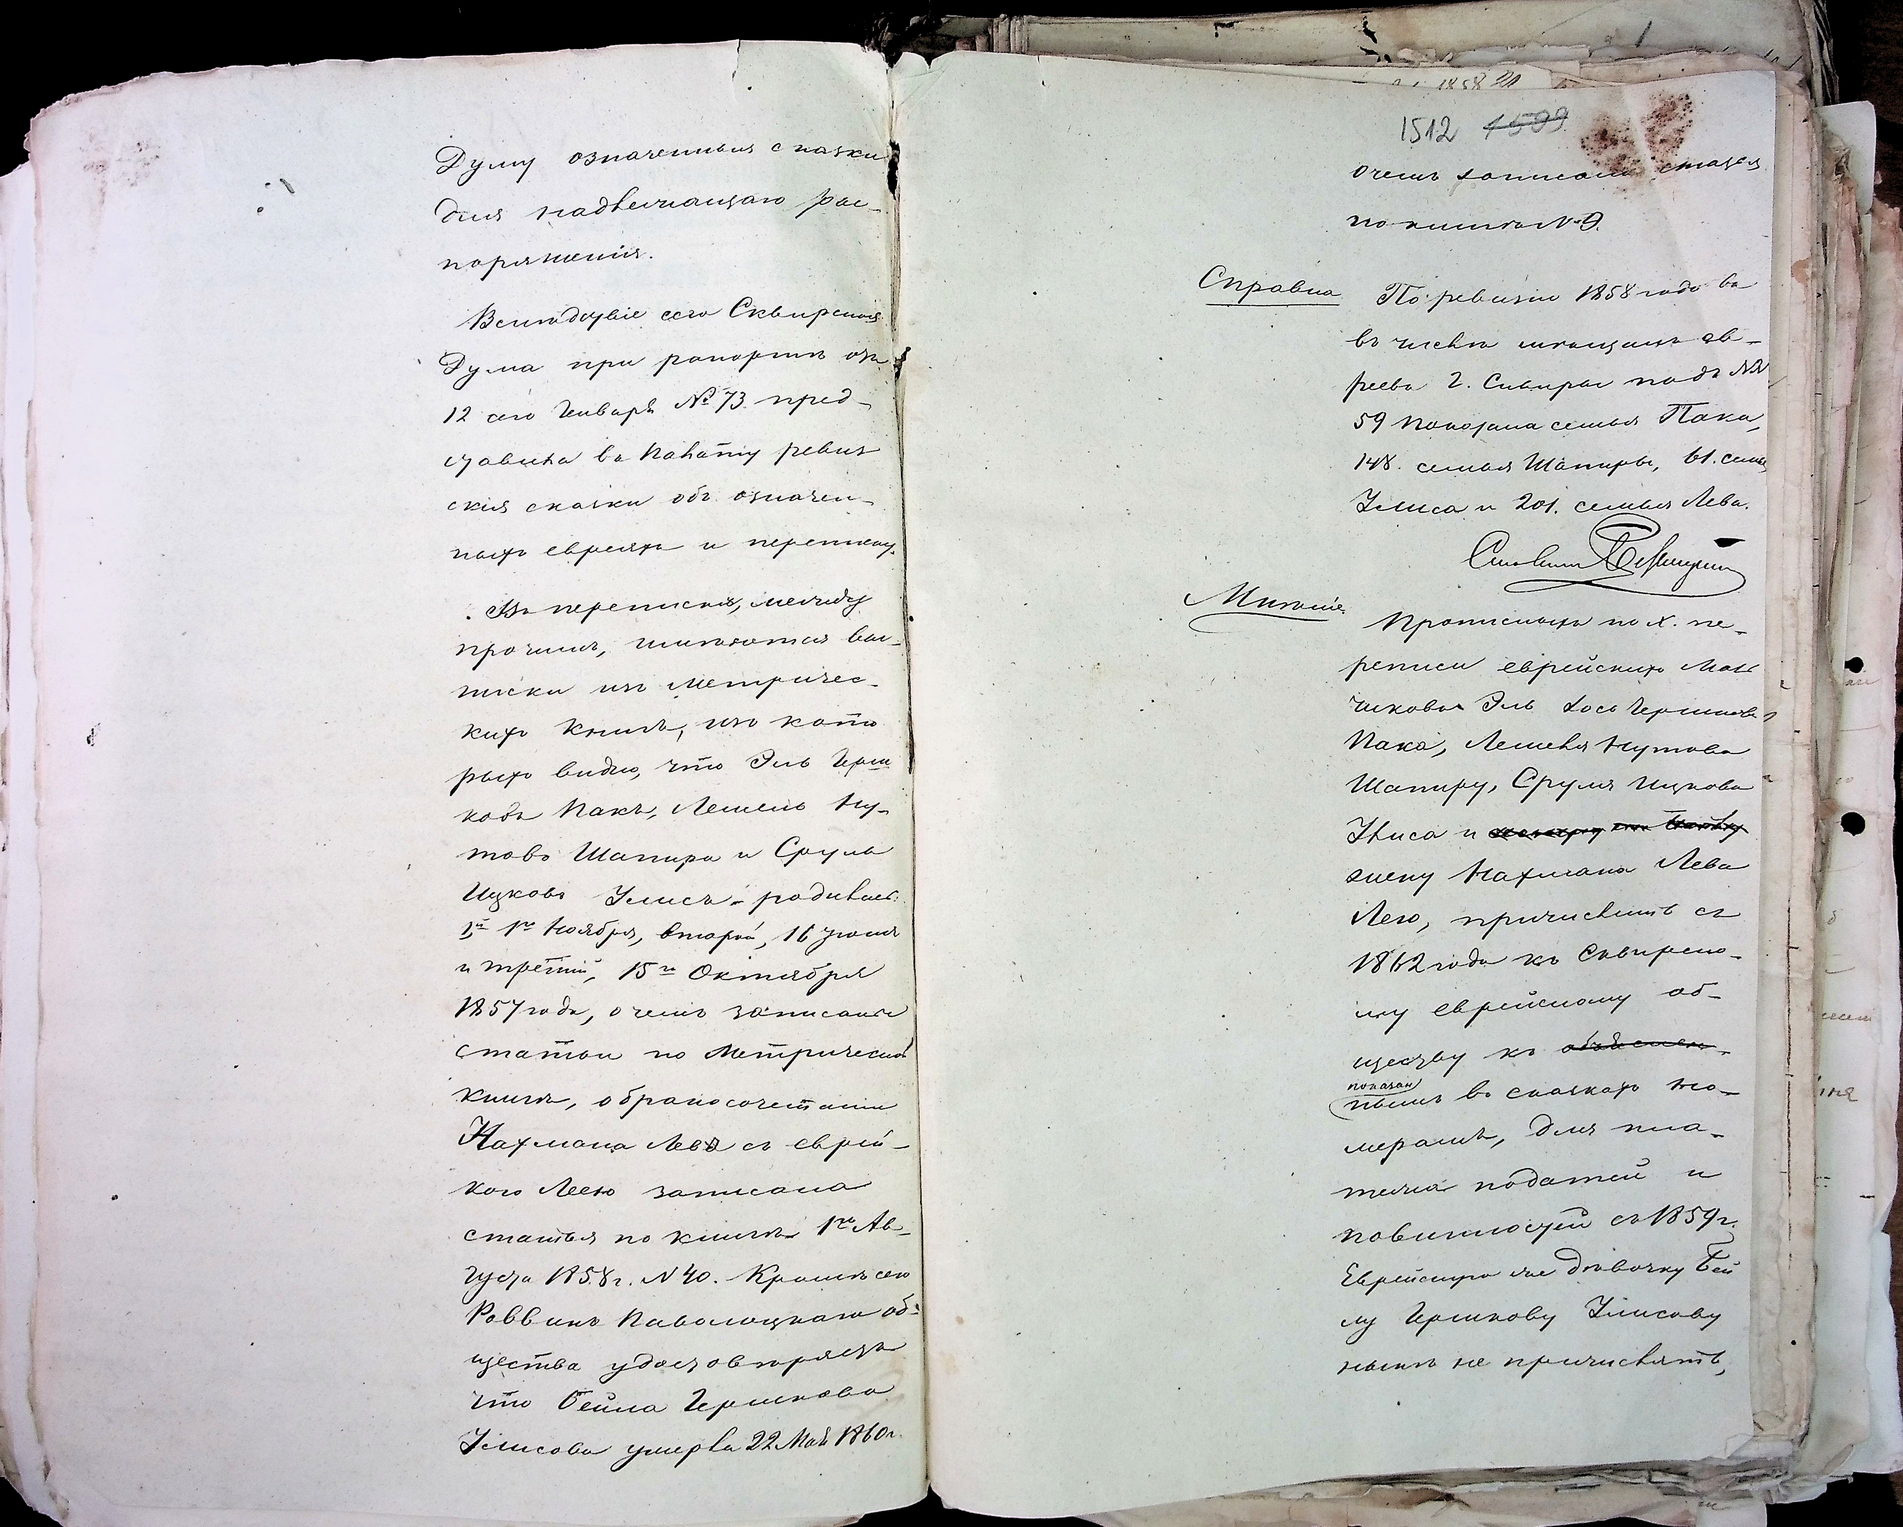 Думу означенныя сказки
для надлежащаго рас-
поряженія.
Вслѣдствіе сего Сквирская
Дума при рапортѣ отъ
12 сего Генваря № 73 пред-
ставила въ Палату ревиз
скія сказки объ означен-
ныхъ евреяхъ и переписку.
Въ перепискѣ, между
прочимъ, имѣются вы-
писки изъ метричес-
кихъ книгъ, изъ кото
рыхъ видно, что Эль Герш
ковъ Пакъ, Лейзеръ Ну-
товъ Шапира и Сруль
Ицковъ Улисъ - родились:
1й 1го Ноября, второй, 16 Іюня
и третій, 15го Октября
1857 года, о чемъ записаны
статьи по Метрической
книгѣ, о бракосочетаніи
Нахмана Лева съ еврей-
кою Леею записана
статья по книгѣ 1го Ав-
густа 1858 г. N 40. Кромѣ сего
Раввинъ Паволоцкаго об-
щества удостовѣряетъ
что Бейла Гершкова
Улисова умерла 22 Мая 1860 г.
1512 1509
о чемъ записана статья
по книгѣ N 9.
Справка По ревизіи 1858 года въ
въ числѣ мѣщанъ ев-
реевъ г. Сквиры подъ №№
59 показана семья Пака,
148. семья Шапиры, 61. семья
Улиса и 201. семья Лева.
Мнѣніе.
Прописныхъ по X. пе-
реписи еврейскихъ маль
чиковъ Эль Гершкова
Пака, Нутова
Шапиру, Сруля Ицкова
Улиса и
жену Нахмана Лева
Лею, причислить съ
1862 года къ Сквирско-
му еврейскому об-
ществу къ объяснен-
показан
нымъ въ сказкахъ но-
мерамъ, для пла-
тежа податей и
повинностей съ 1859 г.
Еврейскую же дѣвочку Бей
лу Гершкову Улисову
нынѣ не причислять,